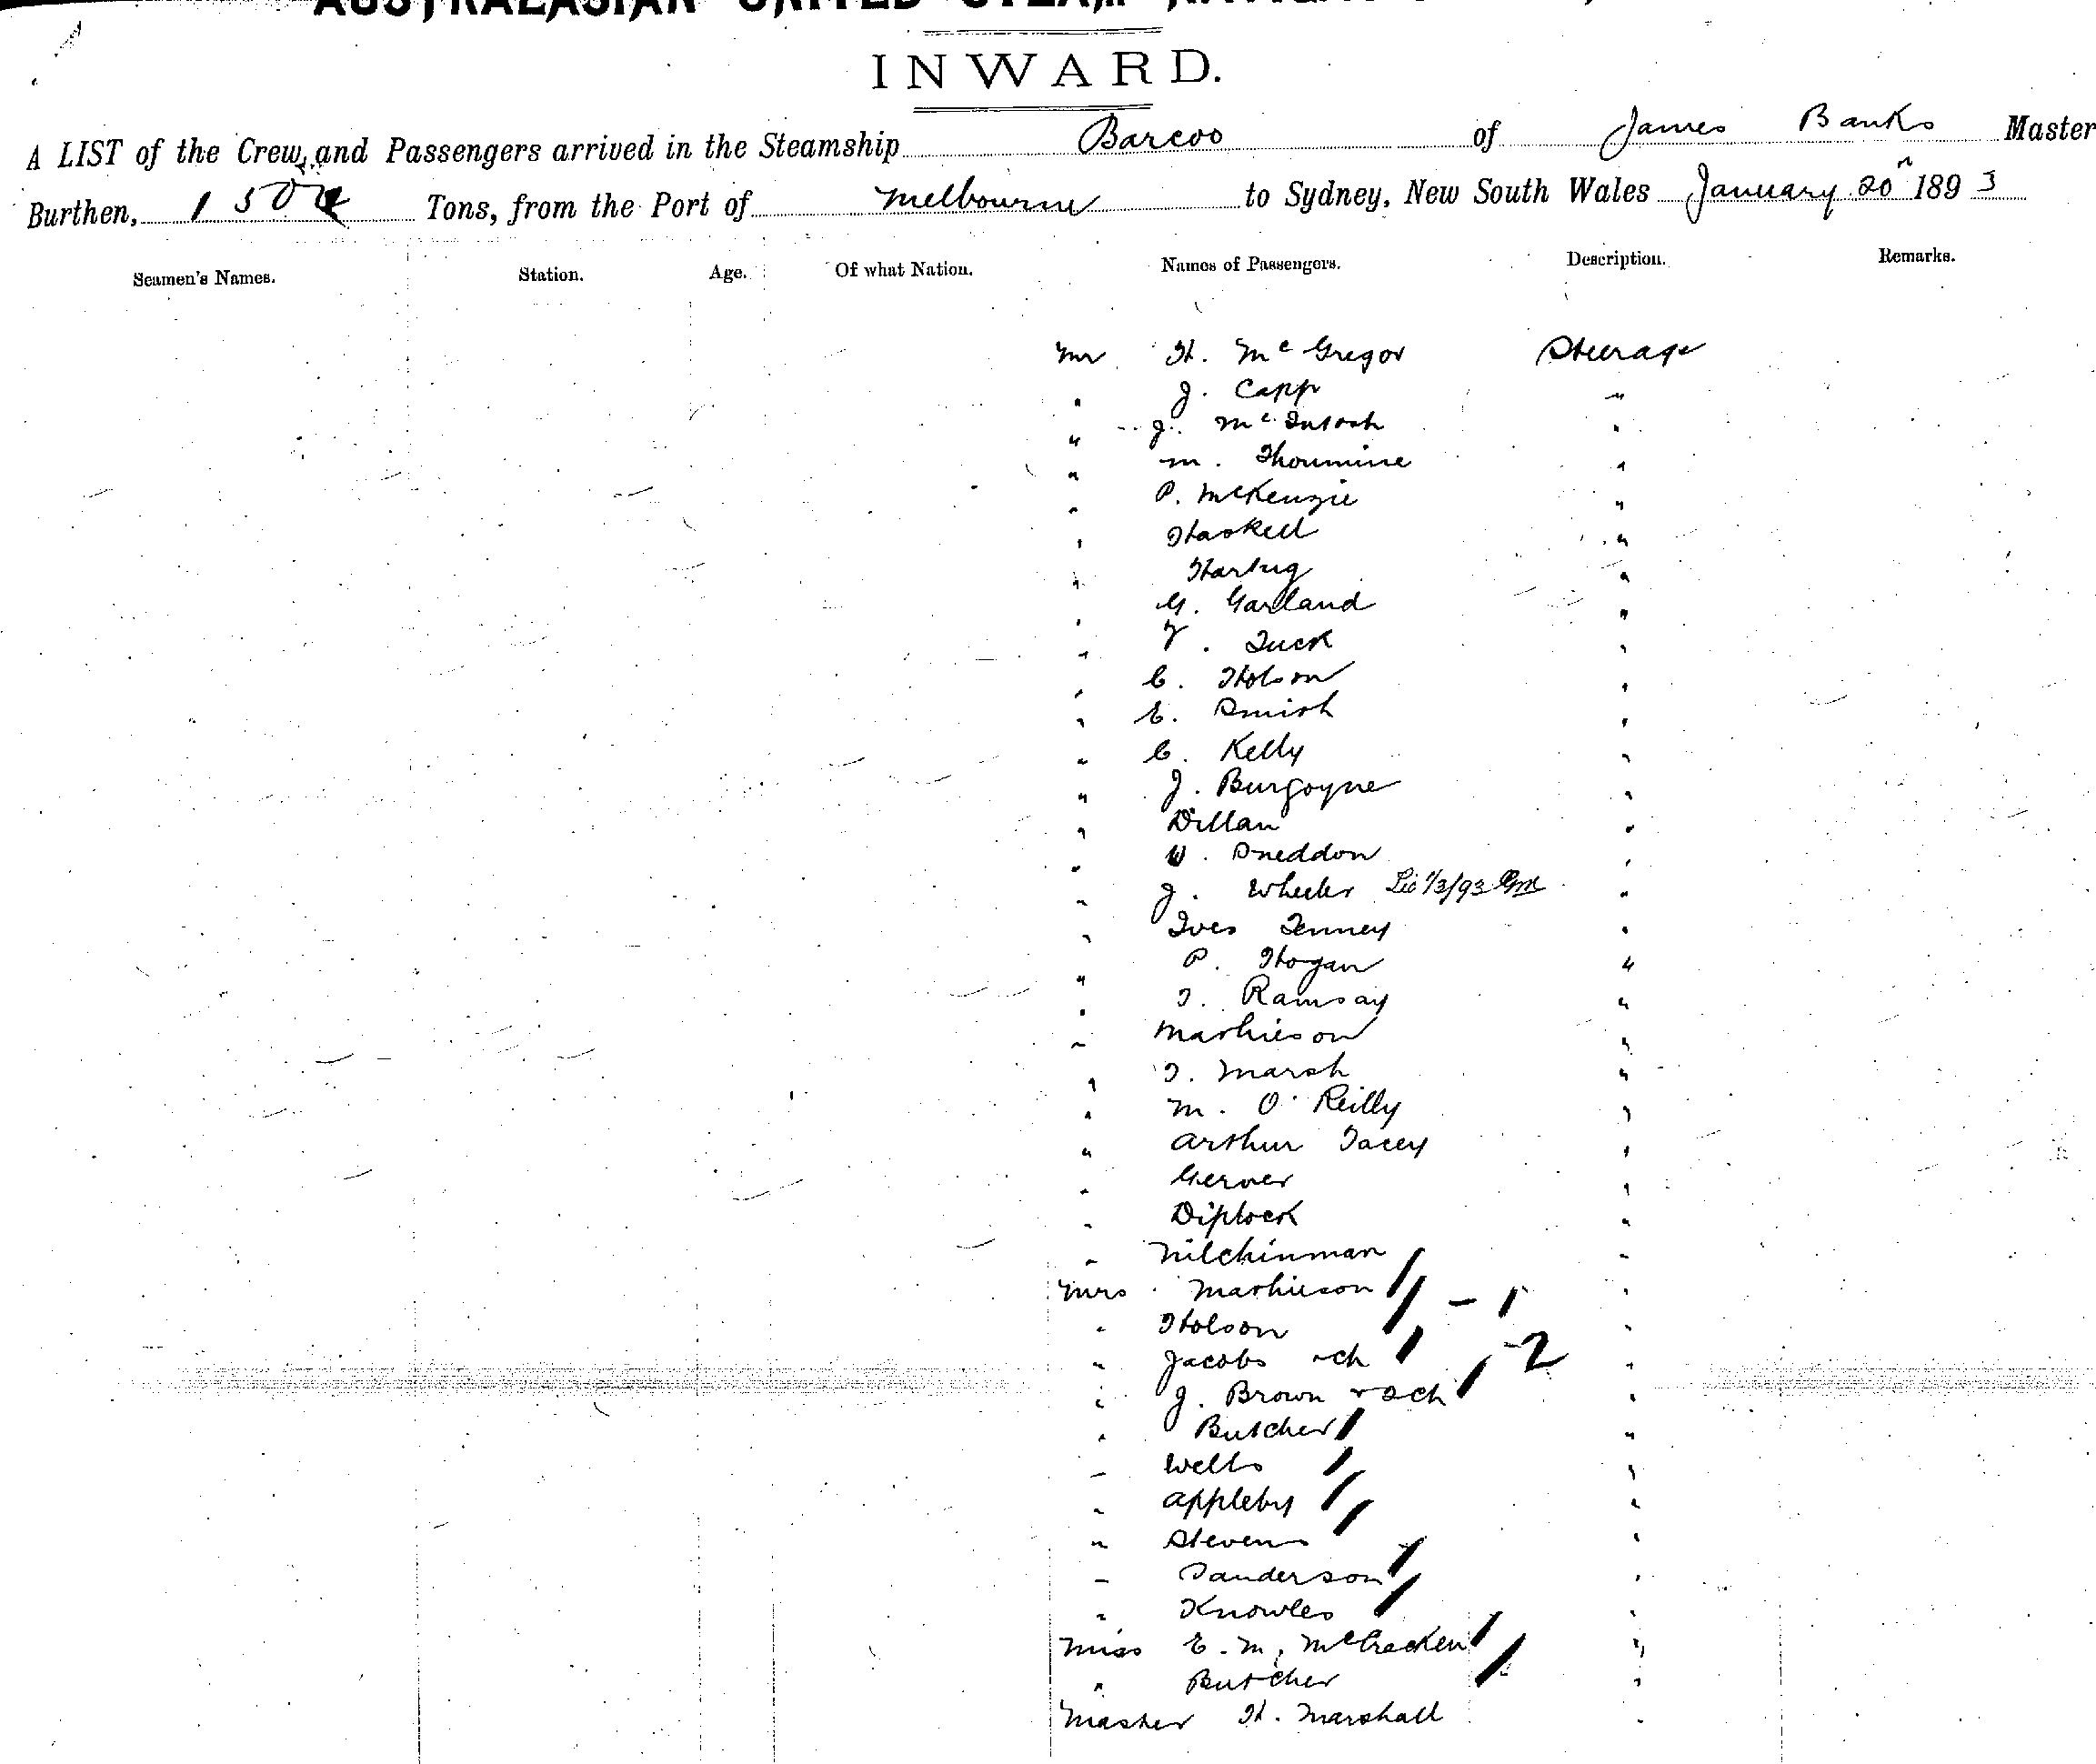 AUSTRALASIAN UNITED STEAM
INWARD.
A LIST of the Crew, and Passengers arrived in the Steamship Barcoo of James Banks Master
Burthen, 150 Tons, from the Port of Melbourne to Sydney, New South Wales January 20 1893
Seamen's Names. Station. Age. Of what Nation. Names of Passengers. Description. Remarks.
Mr H. McGregor Steerage
" J. Capp "
" J. McIntosh "
" M. Thoumine "
" P. McKenzie "
" Haskell "
" Hartug "
" G. Garland "
" T. Tuck "
" C. Holson "
" E. Smith "
" C. Kelly "
" J. Burgoyne "
" Dillan "
" W. Sneddon "
" J. Wheeler Lic 1/3/93 "
" Ives Tenney "
" P. Hogan "
" T. Ramsay "
" Mathieson "
" T. Marsh "
" M. O'Reilly "
" Arthur Tacey "
" Gerver "
" Diplock "
" Nilchinman "
Mrs Mathieson / "
" Holson / - 1 "
" Jacobs & ch / "
" J. Brown & 2 ch / - 2 "
" Butcher / "
" Wells / "
" Appleby / "
" Stevens / "
" Sanderson / "
" Knowles / "
Miss E. M. McCracken / "
" Butcher / "
Master H. Marshall "